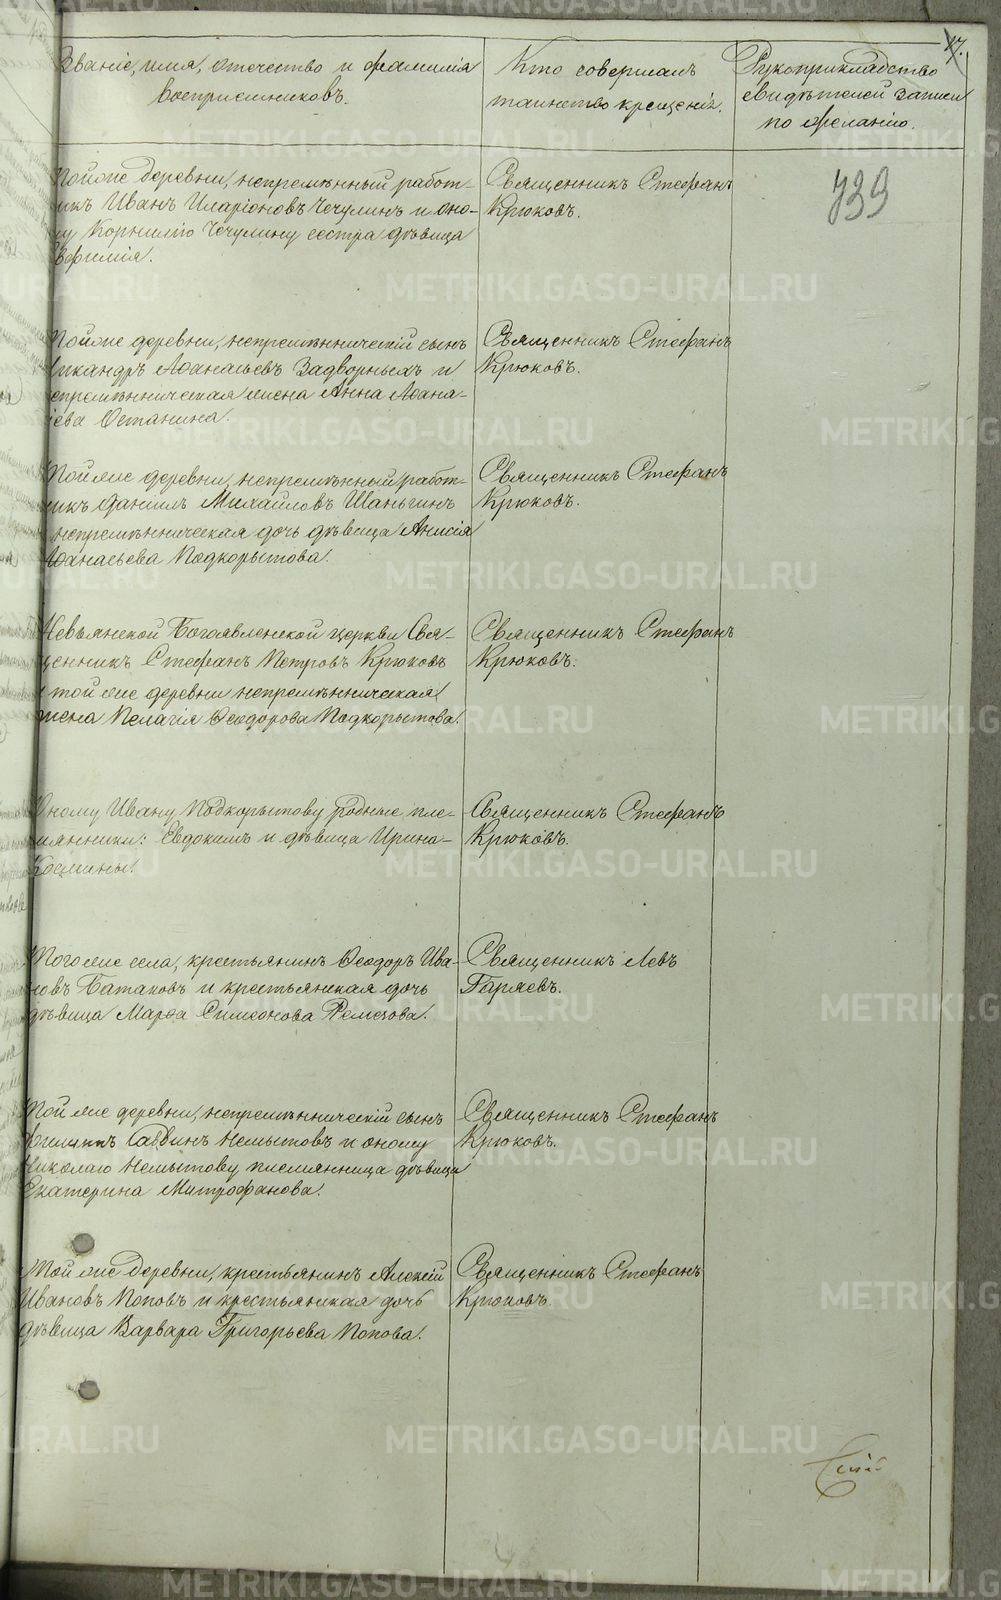 17.
Званіе, имя, отчество и фамилія
воспріемниковъ.
Кто совершалъ
таинство крещенія.
Рукоприкладство
свидѣтелей записи
по желанію.
739
Той же деревни, непремѣнный работ-
никъ Иванъ Иларіоновъ Чечулинъ и оно-
му Корнилію Чечулину сестра дѣвица
Евфимія.
Священникъ Стефанъ
Крюковъ.
Той же деревни, непремѣнническій сынъ
Никандръ Аѳанасьевъ Задворныхъ и
непремѣнническая жена Анна Аѳана-
сіева Останина.
Священникъ Стефанъ
Крюковъ.
Той же деревни, непремѣнный работ-
никъ Даніилъ Михайловъ Шаньгинъ
и непремѣнническая дочь дѣвица Анисія
Аѳанасьева Подкорытова.
Священникъ Стефанъ
Крюковъ.
Невьянской Богоявленской церкви Свя-
щенникъ Стефанъ Петровъ Крюковъ
и той же деревни непремѣнническая
жена Пелагія Ѳеодорова Подкорытова.
Священникъ Стефанъ
Крюковъ.
Оному Ивану Подкорытову родные пле-
мянники: Евдокимъ и дѣвица Ирина
Космины.
Священникъ Стефанъ
Крюковъ.
Того же села, крестьянинъ Ѳеодоръ Ива-
новъ Батаковъ и крестьянская дочь
дѣвица Марѳа Симеонова Ремезова.
Священникъ Левъ
Гаряевъ.
Той же деревни, непремѣнническій сынъ
Филиппъ Саввинъ Немытовъ и оному
Николаю Немытову племянница дѣвица
Екатерина Митрофанова.
Священникъ Стефанъ
Крюковъ.
Той же деревни, крестьянинъ Алексій
Ивановъ Поповъ и крестьянская дочь
дѣвица Варвара Григорьева Попова.
Священникъ Стефанъ
Крюковъ.
METRIKI.GASO-URAL.RU